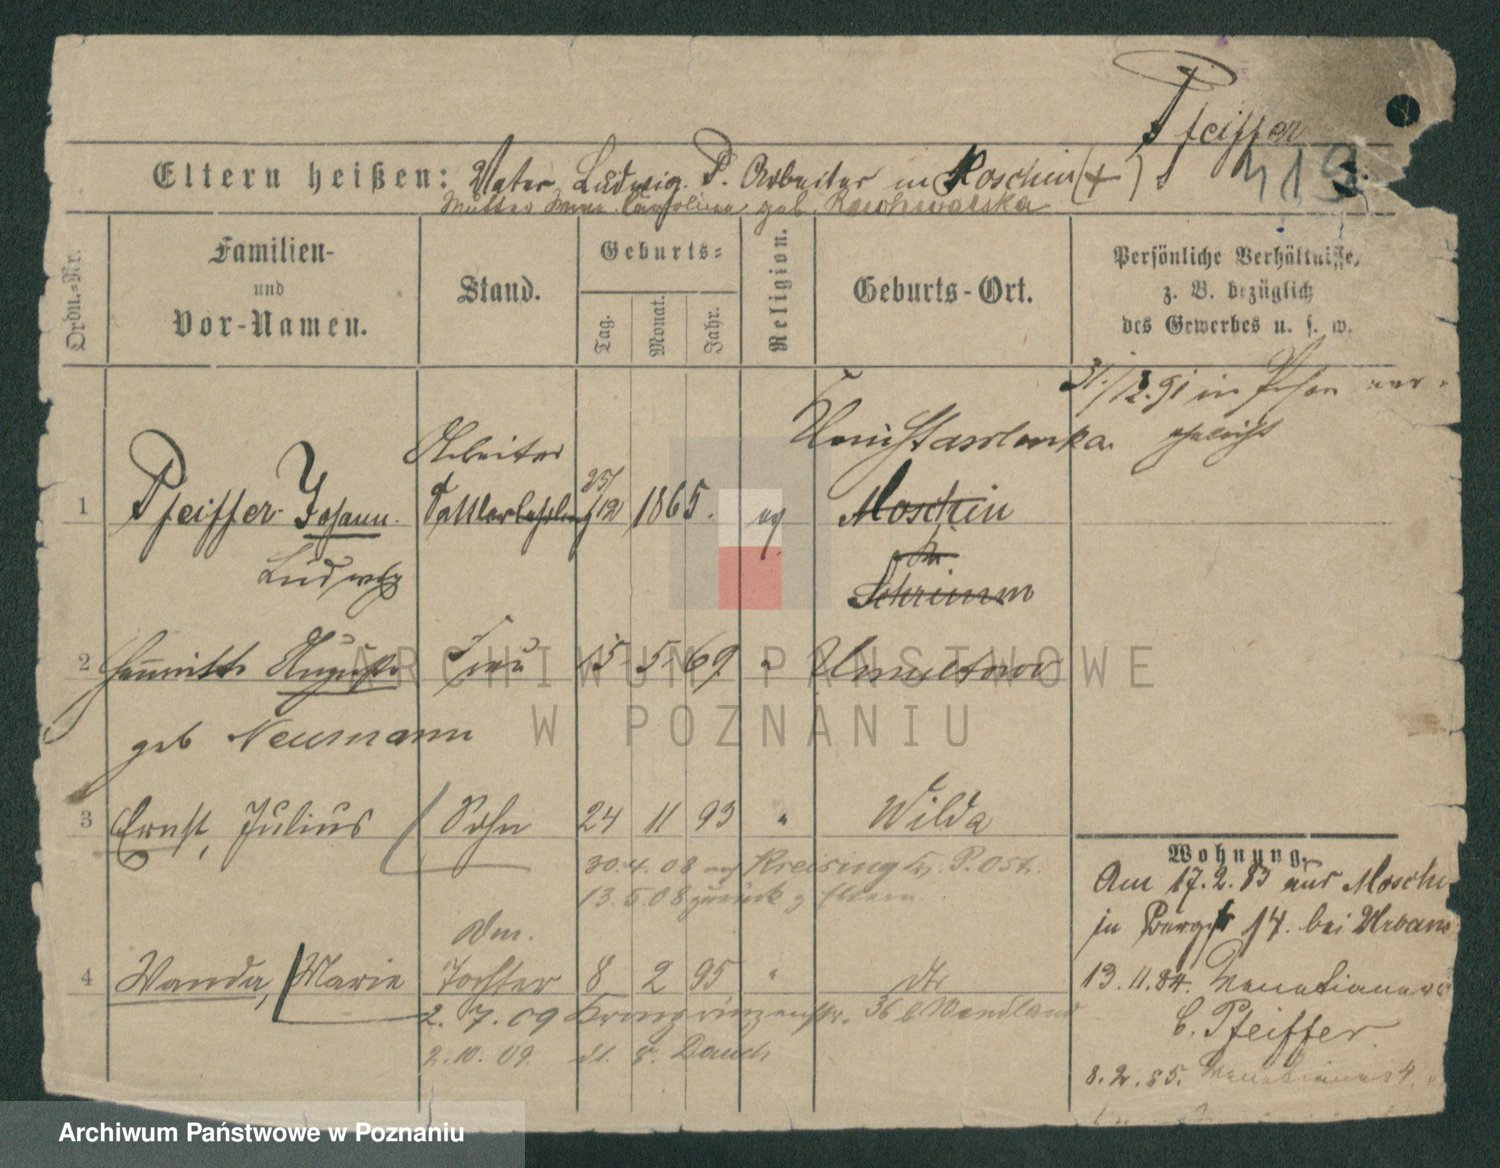 Pfeiffer
419
Eltern heißen: Vater Ludwig P. Arbeiter in Moschin (+)
Mutter Caroline geb.
Ordn.-Nr.
Familien-
und
Vor-Namen.
Stand.
Geburts-
Tag.
Monat.
Jahr.
Religion.
Geburts-Ort.
Persönliche Verhältnisse,
z. B. bezüglich
des Gewerbes u. s. w.
31./12.91 in Posen ver-
ehelicht
Arbeiter
1 Pfeiffer Johann Sattlerlehrling 25/12 1865. ev Moschin
Ludwig
Schrimm
2 Auguste Frau 15 5 69 " Umultowo
geb Neumann
3 Ernst, Julius Sohn 24 11 93 " Wilda
30.4.08 Kreising P. Ost.
13.5.08 zurück z Eltern
Wohnung.
Am 17.2.83 aus Moschin
in Bergstr 14. bei Urban
13.11.84.
b. Pfeiffer.
8.2.85.
4 Wanda, Marie Tochter 8 2 95 " dto
2.7.09 Kronprinzenstr. 36 b Wendland
2.10.09
ARCHIWUM PAŃSTWOWE
W POZNANIU
Archiwum Państwowe w Poznaniu